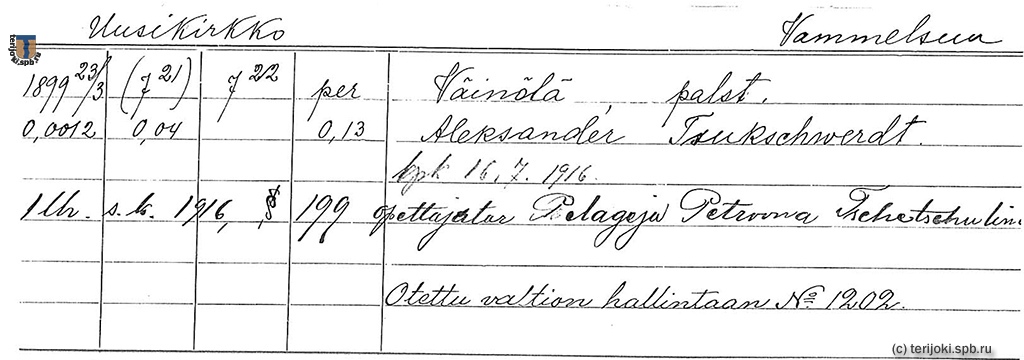 Uusikirkko Vammelsuu
1899 23/3 (7 21) 7 22 per Väinölä, palst.
0,0012 0,04 0,13 Aleksander Tsukschwerdt.
kpk 16.7.1916.
1 lh. s.k. 1916, § 199 opettajatar Pelageja Petrovna
Otettu valtion hallintaan No 1202.
terijoki.spb.ru
(c) terijoki.spb.ru